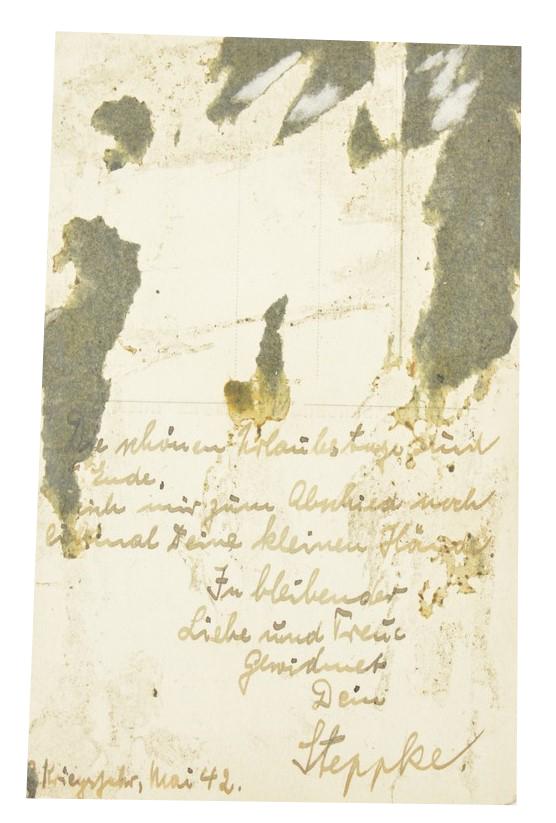 Die schönen Urlaubstage sind
Ende,
ich mir zum Abschied noch
einmal Deine kleinen Hände
In bleibender
Liebe und Treue
Gewidmet
Dein
Steppke.
Kriegsjahr, Mai 42.